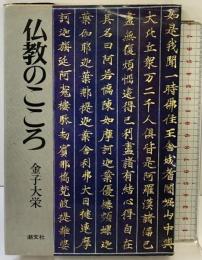 仏教のこころ
金子大栄
潮文社
如是我聞一時佛住王舎城耆闍崛山中與
大比丘衆万二千人倶皆是阿羅漢諸漏已
盡無復煩惱逮得己利盡諸有結心得自在
其名曰阿若憍陳如摩訶迦葉優樓頻螺迦
葉伽耶迦葉那提迦葉舎利弗大目揵連摩
訶迦旃延阿㝹樓馱劫賓那憍梵波提離婆